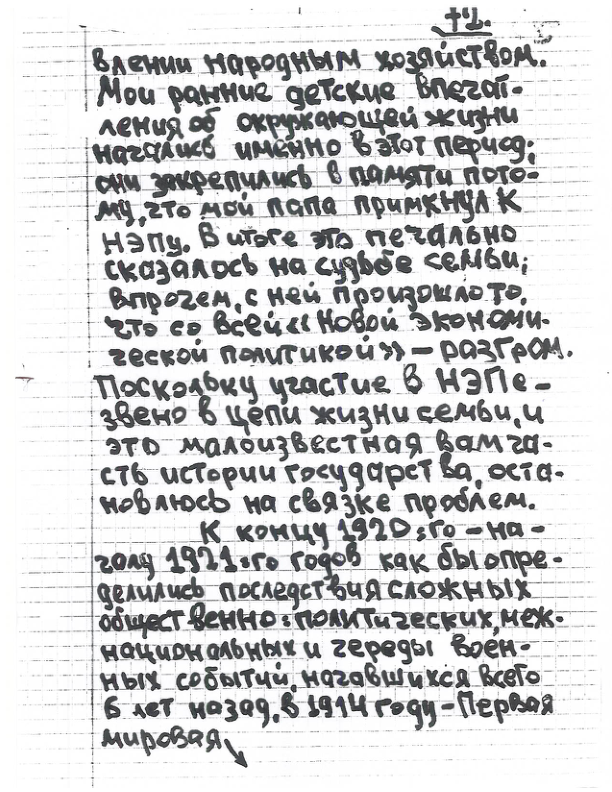 влении народным хозяйством.
Мои ранние детские впечат-
ления об окружающей жизни
начались именно в этот период;
они закрепились в памяти пото-
му, что мой папа примкнул к
НЭПу. В итоге это печально
сказалось на судьбе семьи;
впрочем, с ней произошло то,
что со всей «Новой экономи-
ческой политикой» – разгром.
Поскольку участие в НЭПе –
звено в цепи жизни семьи, и
это малоизвестная вам ча-
сть истории государства, оста-
новлюсь на связке проблем.
К концу 1920=го – на-
чалу 1921=го годов как бы опре-
делились последствия сложных
общественно=политических, меж-
национальных и череды воен-
ных событий, начавшихся всего
6 лет назад, в 1914 году – Первая
мировая